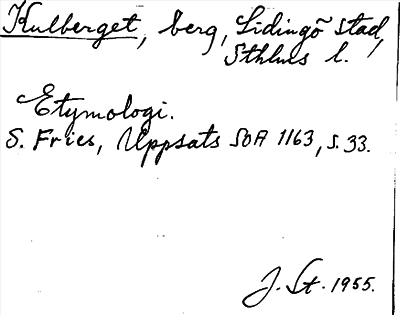 Kulberget, berg, Lidingö stad,
Sthlms l.
Etymologi.
S. Fries, Uppsats SOA 1163, s. 33.
J. St. 1955.